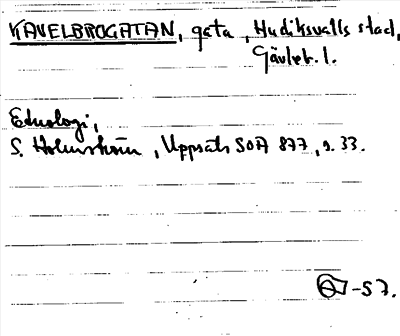 KAVELBROGATAN, gata, Hudiksvalls stad,
Gävleb. l.
Etnologi,
S. Holmström, Uppsats SOA 877, s. 33.
-57.